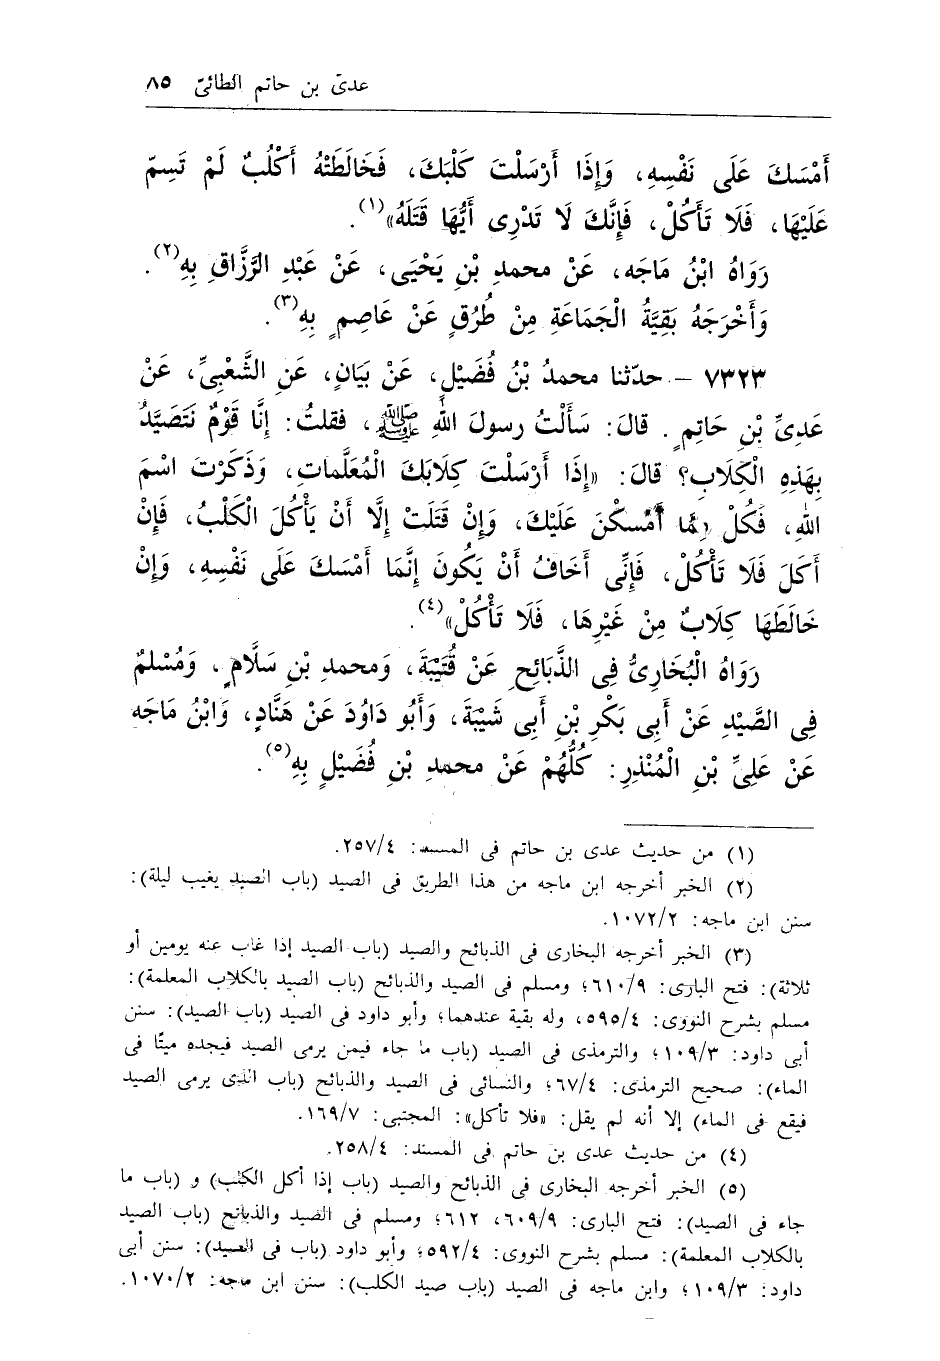 عدىّ بن حاتم الطائىّ ٨٥
أَمْسَكَ عَلَى نَفْسِهِ، وَإِذَا أَرْسَلْتَ كَلْبَكَ، فَخَالَطَتْهُ أَكْلُبٌ لَمْ تَسِمّ
عَلَيْهَا، فَلَا تَأكُلْ، فَإِنَّكَ لَا تَدْرِى أَيُّهَا قَتَلَهُ»(١).
رَوَاهُ ابْنُ مَاجَه، عَنْ محمدِ بْنِ يَحْيَى، عَنْ عَبْدِ الرَّزَّاقِ بِهِ(٢).
وَأَخْرَجَهُ بَقِيَّةُ الْجَمَاعَةِ مِنْ طُرُقٍ عَنْ عَاصِمٍ بِهِ(٣).
٧٣٢٣ - حدّثنا محمدُ بْنُ فُضَيْلٍ، عَنْ بَيَانٍ، عَنِ الشَّعْبِىِّ، عَنْ
عَدِىِّ بْنِ حَاتِمٍ. قالَ: سَأَلْتُ رسولَ اللهِ ﷺ، فقلتُ: إِنَّا قَوْمٌ نَتَصَيَّدُ
بِهَذِهِ الْكِلَابِ؟ قالَ: «إِذَا أَرْسَلْتَ كِلَابَكَ الْمُعَلَّماتِ، وَذَكَرْتَ اسْمَ
اللهِ، فَكُلْ مِمَّا أَمْسكْنَ عَلَيْكَ، وَإِنْ قَتَلَتْ إِلَّا أَنْ يَأْكُلَ الْكَلْبُ، فَإِنْ
أَكَلَ فَلَا تَأْكُلْ، فَإِنِّى أَخَافُ أَنْ يَكُونَ إِنَّمَا أَمْسَكَ عَلَى نَفْسِهِ، وَإِنْ
خَالَطَهَا كِلَابٌ مِنْ غَيْرِهَا، فَلَا تَأْكُلْ»(٤).
رَوَاهُ الْبُخَارِىُّ فِى الذَّبَائِحِ عَنْ قُتَيْبَةَ، وَمحمدِ بْنِ سَلَّامٍ، وَمُسْلمٌ
فِى الصَّيْدِ عَنْ أَبِى بَكْرِ بْنِ أَبِى شَيْبَةَ، وَأَبُو دَاوُدَ عَنْ هَنَّادٍ، وَابْنُ مَاجَه
عَنْ عَلِىِّ بْنِ الْمُنْذِرِ: كُلُّهُمْ عَنْ محمدِ بْنِ فُضَيْلٍ بِهِ(٥).
(١) من حديث عدى بن حاتم فى المسند: ٢٥٧/٤.
(٢) الخبر أخرجه ابن ماجه من هذا الطريق فى الصيد (باب الصيد يغيب ليلة):
سنن ابن ماجه: ١٠٧٢/٢.
(٣) الخبر أخرجه البخارى فى الذبائح والصيد (باب الصيد إذا غاب عنه يومين أو
ثلاثة): فتح البارى: ٦١٠/٩؛ ومسلم فى الصيد والذبائح (باب الصيد بالكلاب المعلمة):
مسلم بشرح النووى: ٥٩٥/٤، وله بقية عندهما؛ وأبو داود فى الصيد (باب الصيد): سنن
أبى داود: ١٠٩/٣؛ والترمذى فى الصيد (باب ما جاء فيمن يرمى الصيد فيجده ميتًا فى
الماء): صحيح الترمذى: ٦٧/٤؛ والنسائى فى الصيد والذبائح (باب الذى يرمى الصيد
فيقع فى الماء) إلا أنه لم يقل: «فلا تأكل»: المجتبى: ١٦٩/٧.
(٤) من حديث عدى بن حاتم فى المسند: ٢٥٨/٤.
(٥) الخبر أخرجه البخارى فى الذبائح والصيد (باب إذا أكل الكلب) و (باب ما
جاء فى الصيد): فتح البارى: ٦٠٩/٩، ٦١٢؛ ومسلم فى الصيد والذبائح (باب الصيد
بالكلاب المعلمة): مسلم بشرح النووى: ٥٩٢/٤؛ وأبو داود (باب فى الصيد): سنن أبى
داود: ١٠٩/٣؛ وابن ماجه فى الصيد (باب صيد الكلب): سنن ابن ماجه: ١٠٧٠/٢.